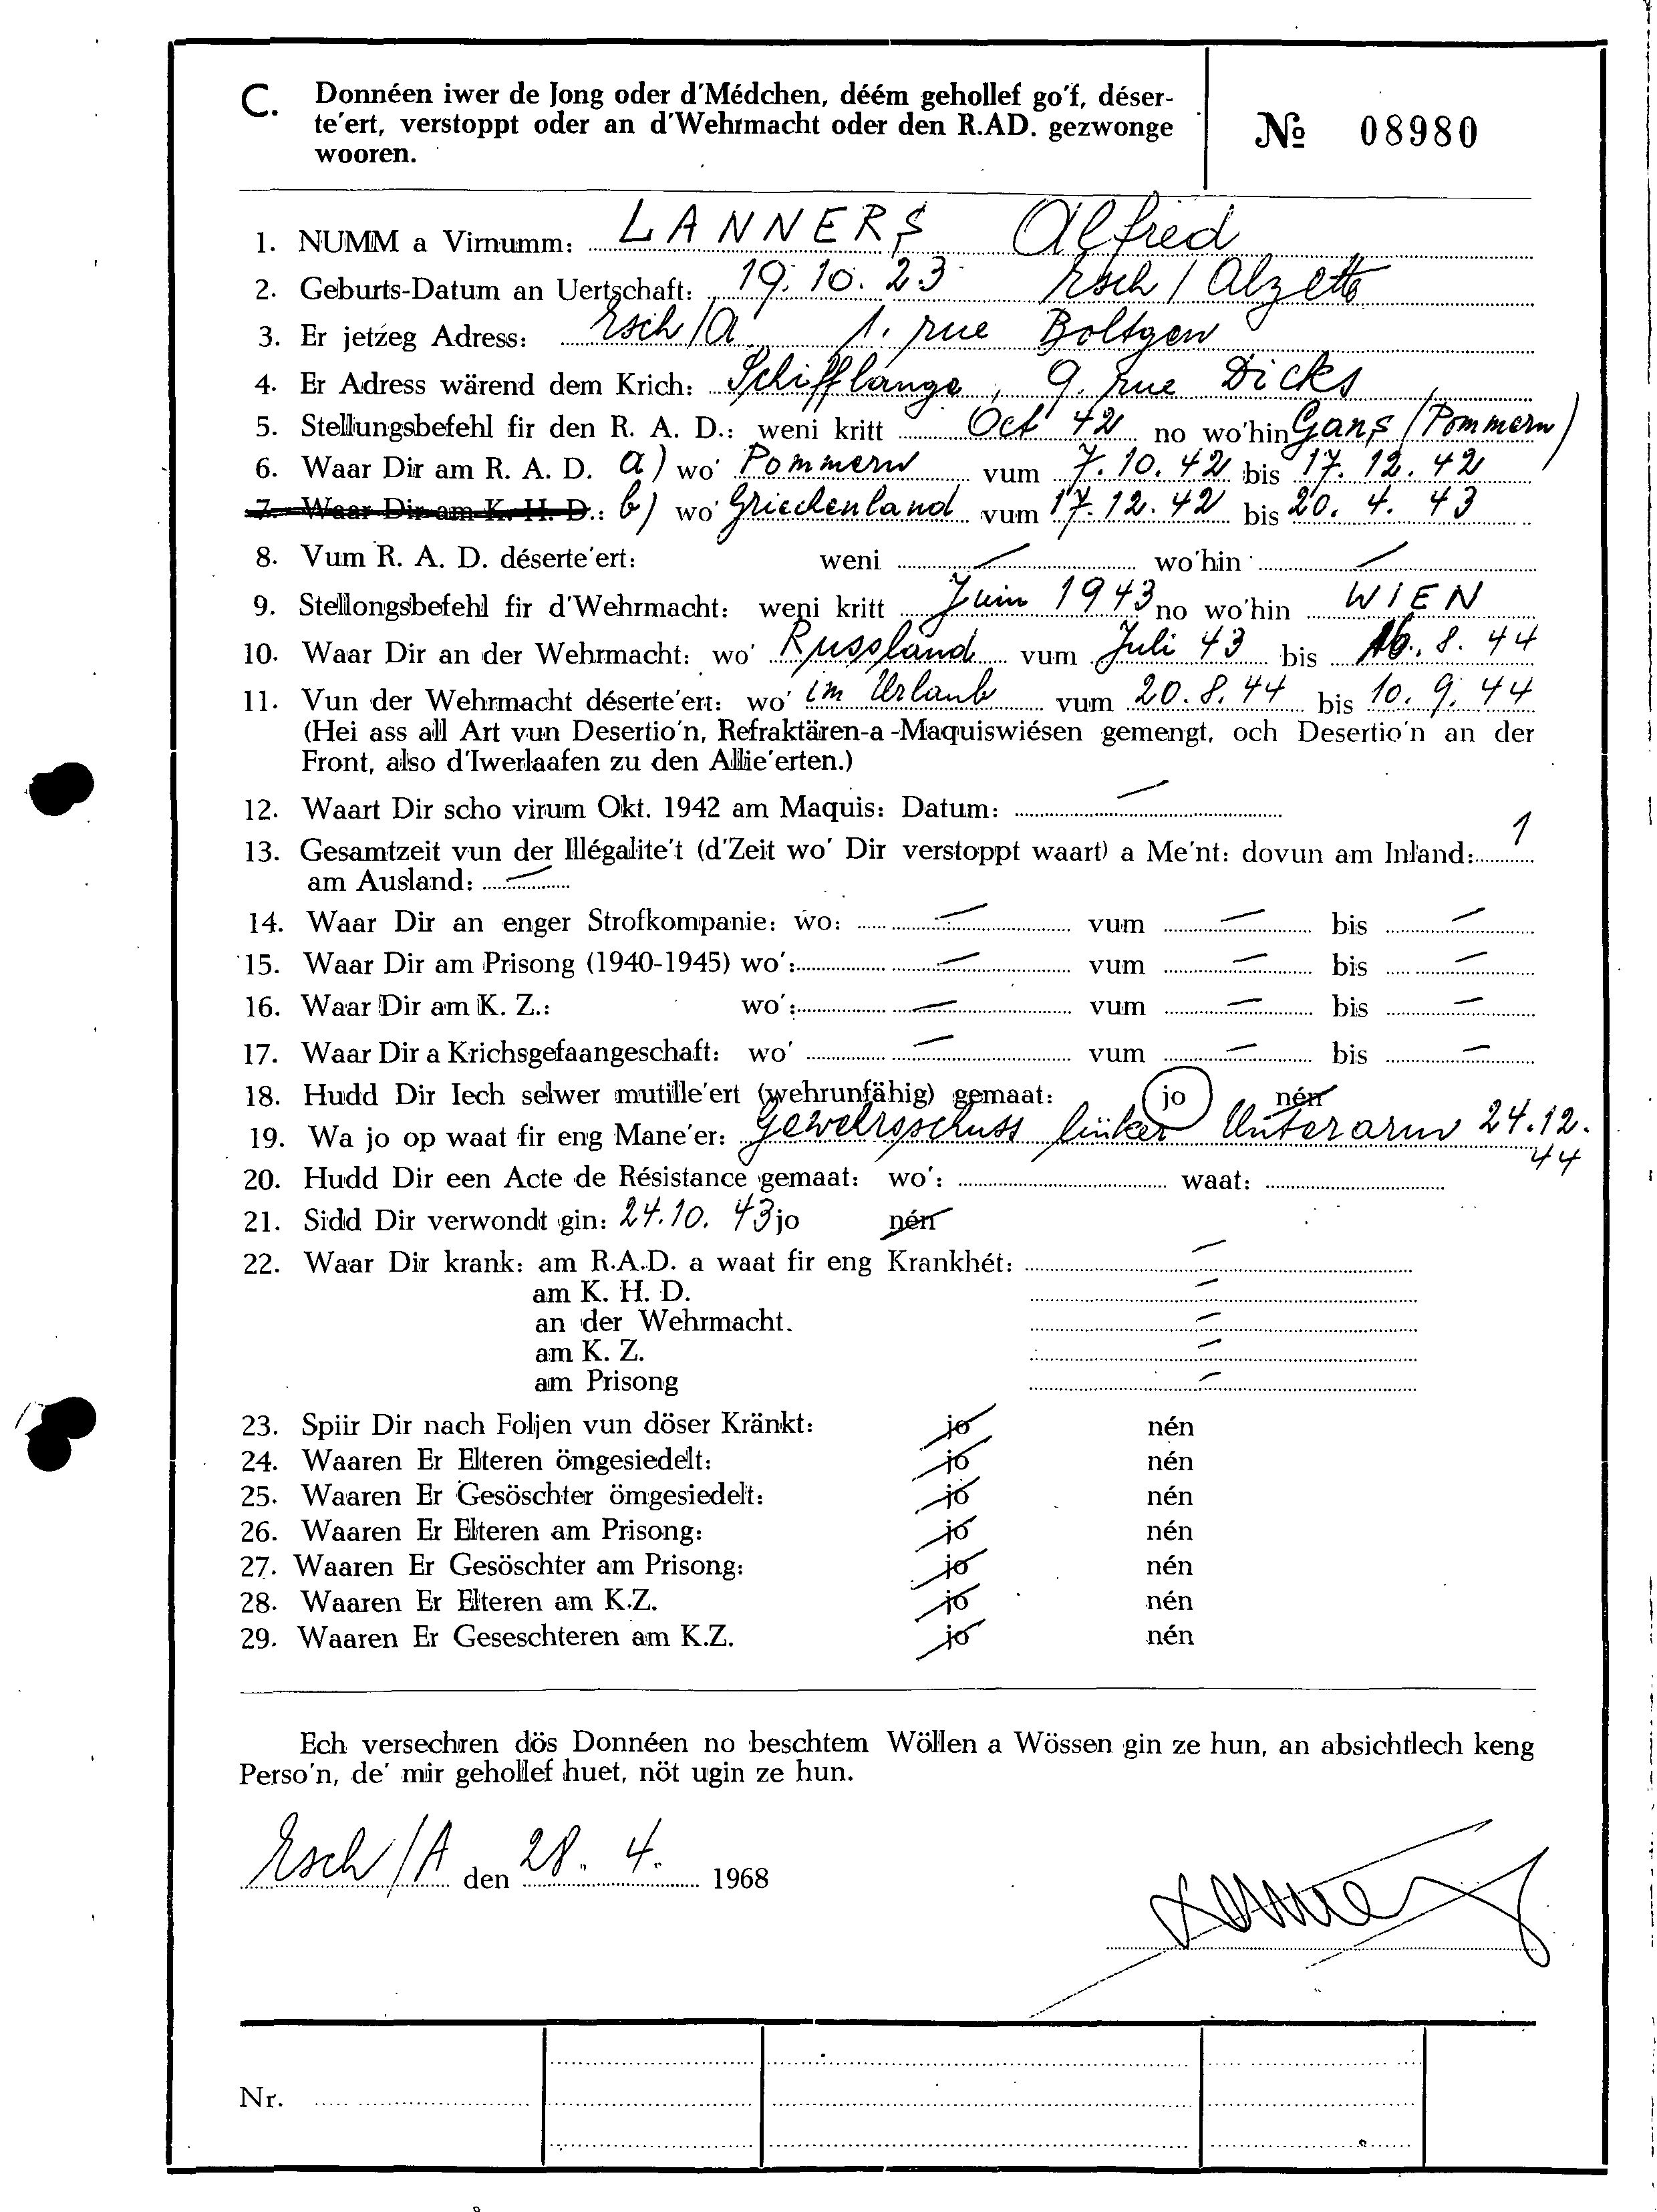 C. Donnéen iwer de Jong oder d'Médchen, déém gehollef go'f, déser-
te'ert, verstoppt oder an d'Wehrmacht oder den R.AD. gezwonge
wooren.
№ 08980
1. NUMM a Virnumm: LANNERS Alfred
2. Geburts-Datum an Uertschaft: 19.10.23 Esch / Alzette
3. Er jetzeg Adress: Esch/A 1. rue Boltgen
4. Er Adress wärend dem Krich: Schifflange, 9. rue Dicks
5. Stellungsbefehl fir den R. A. D.: weni kritt Oct 42 no wo'hin Gans (Pommern)
6. Waar Dir am R. A. D. a) wo' Pommern vum 7.10.42 bis 17.12.42
7. Waar Dir am K. H. D.: b) wo' Griechenland vum 17.12.42 bis 20. 4. 43
8. Vum R. A. D. déserte'ert: weni — wo'hin —
9. Stellongsbefehl fir d'Wehrmacht: weni kritt Juin 1943 no wo'hin WIEN
10. Waar Dir an der Wehrmacht: wo' Russland vum Juli 43 bis 16.8.44
11. Vun der Wehrmacht déserte'ert: wo' im Urlaub vum 20.8.44 bis 10.9.44
(Hei ass all Art vun Desertio'n, Refraktären-a-Maquiswiésen gemengt, och Desertio'n an der
Front, also d'Iwerlaafen zu den Allie'erten.)
12. Waart Dir scho virum Okt. 1942 am Maquis: Datum: —
13. Gesamtzeit vun der Illégalite't (d'Zeit wo' Dir verstoppt waart) a Me'nt: dovun am Inland: 1
am Ausland: —
14. Waar Dir an enger Strofkompanie: wo: — vum — bis —
15. Waar Dir am Prisong (1940-1945) wo': — vum — bis —
16. Waar Dir am K. Z.: wo': — vum — bis —
17. Waar Dir a Krichsgefaangeschaft: wo' — vum — bis —
18. Hudd Dir Iech selwer mutille'ert (wehrunfähig) gemaat: jo nén
19. Wa jo op waat fir eng Mane'er: Gewehrschuss linker Unterarm 24.12.
44
20. Hudd Dir een Acte de Résistance gemaat: wo': waat:
21. Sidd Dir verwondt gin: 24.10.43 jo nén
22. Waar Dir krank: am R.A.D. a waat fir eng Krankhét: —
am K. H. D. —
an der Wehrmacht. —
am K. Z. —
am Prisong —
23. Spiir Dir nach Foljen vun döser Kränkt: jo nén
24. Waaren Er Elteren ömgesiedelt: jo nén
25. Waaren Er Gesöschter ömgesiedelt: jo nén
26. Waaren Er Elteren am Prisong: jo nén
27. Waaren Er Gesöschter am Prisong: jo nén
28. Waaren Er Elteren am K.Z. jo nén
29. Waaren Er Geseschteren am K.Z. jo nén
Ech versechren dös Donnéen no beschtem Wöllen a Wössen gin ze hun, an absichtlech keng
Perso'n, de' mir gehollef huet, nöt ugin ze hun.
Esch/A den 28. 4. 1968
Nr.